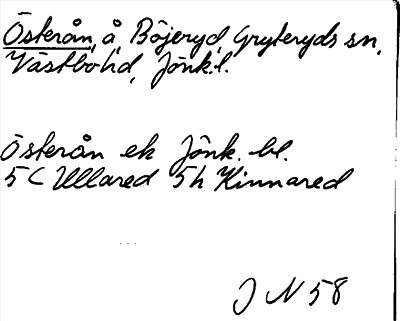 Österån, å, Böjeryd, Gryteryds sn,
Västbo hd, Jönk.l.
Österån ek Jönk. bl.
5 C Ullared 5h Kinnared
J N 58